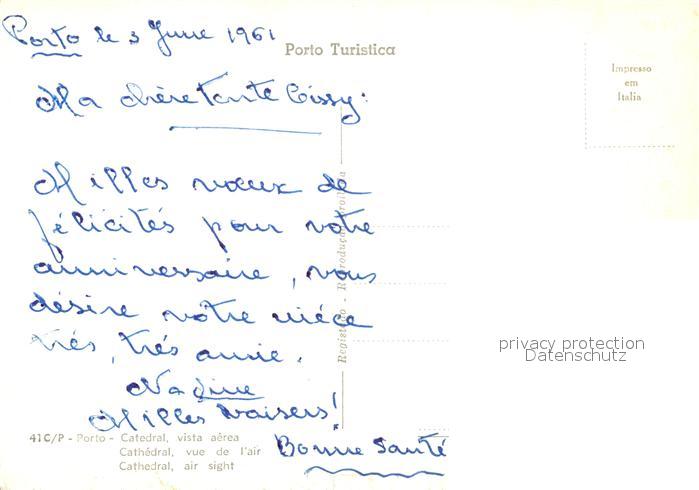 Porto le 3 June 1961
Porto Turistica
Impresso
em
Italia
Ma chère Tante Cissy:
Milles vœux de
félicités pour votre
anniversaire, vous
désire vôtre niéce
trés, trés amie.
Nadine
Milles baisers!
Bonne Santé
41C/P - Porto - Catedral, vista aêrea
Cathédral, vue de l'air
Cathedral, air sight
Registado - Reprodução Proibida
privacy protection
Datenschutz